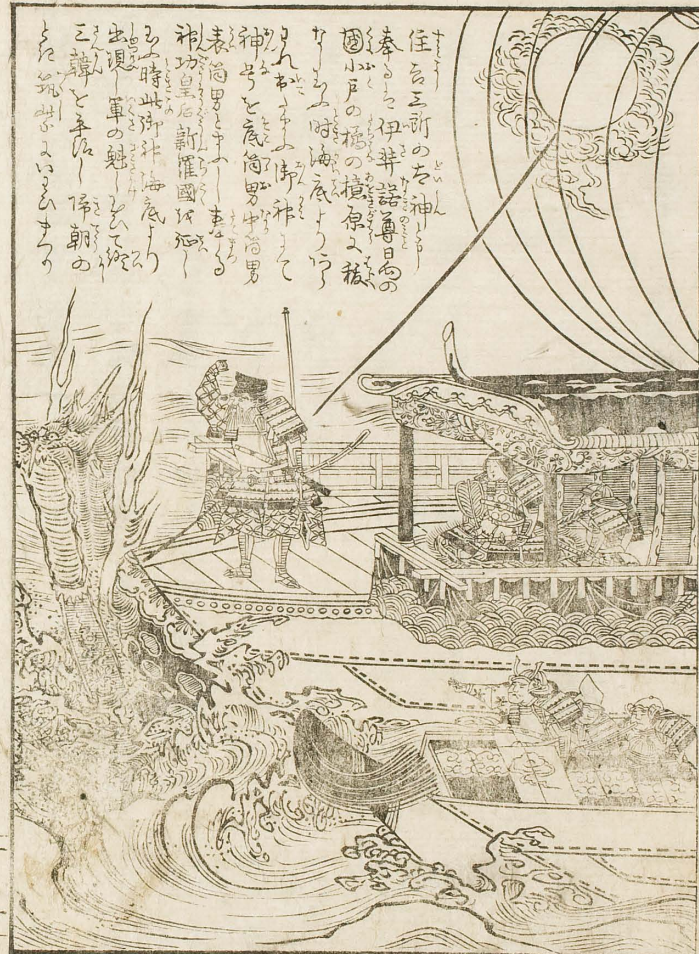 住吉三所の大神と申し
奉るは伊弉諾尊日向の
國小戸の橘の檍原に秡
なし玉ふ時海底より
あられ出たまふ御神にて
神号を底筒男中筒男
表筒男と申し奉る
神功皇后新羅國を征し
玉ふ時此御神海底より
出現し軍の魁し玉ひて終に
三韓を平治し帰朝の
とき筑紫にいわひまつり